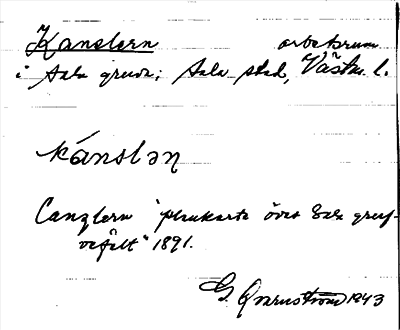 Kanslern arbetsrum
i Sala gruva; Sala stad, Västm. l.
kánslən
Canzlern "plankarta över Sala gruf-
vefält" 1891.
G. 1943